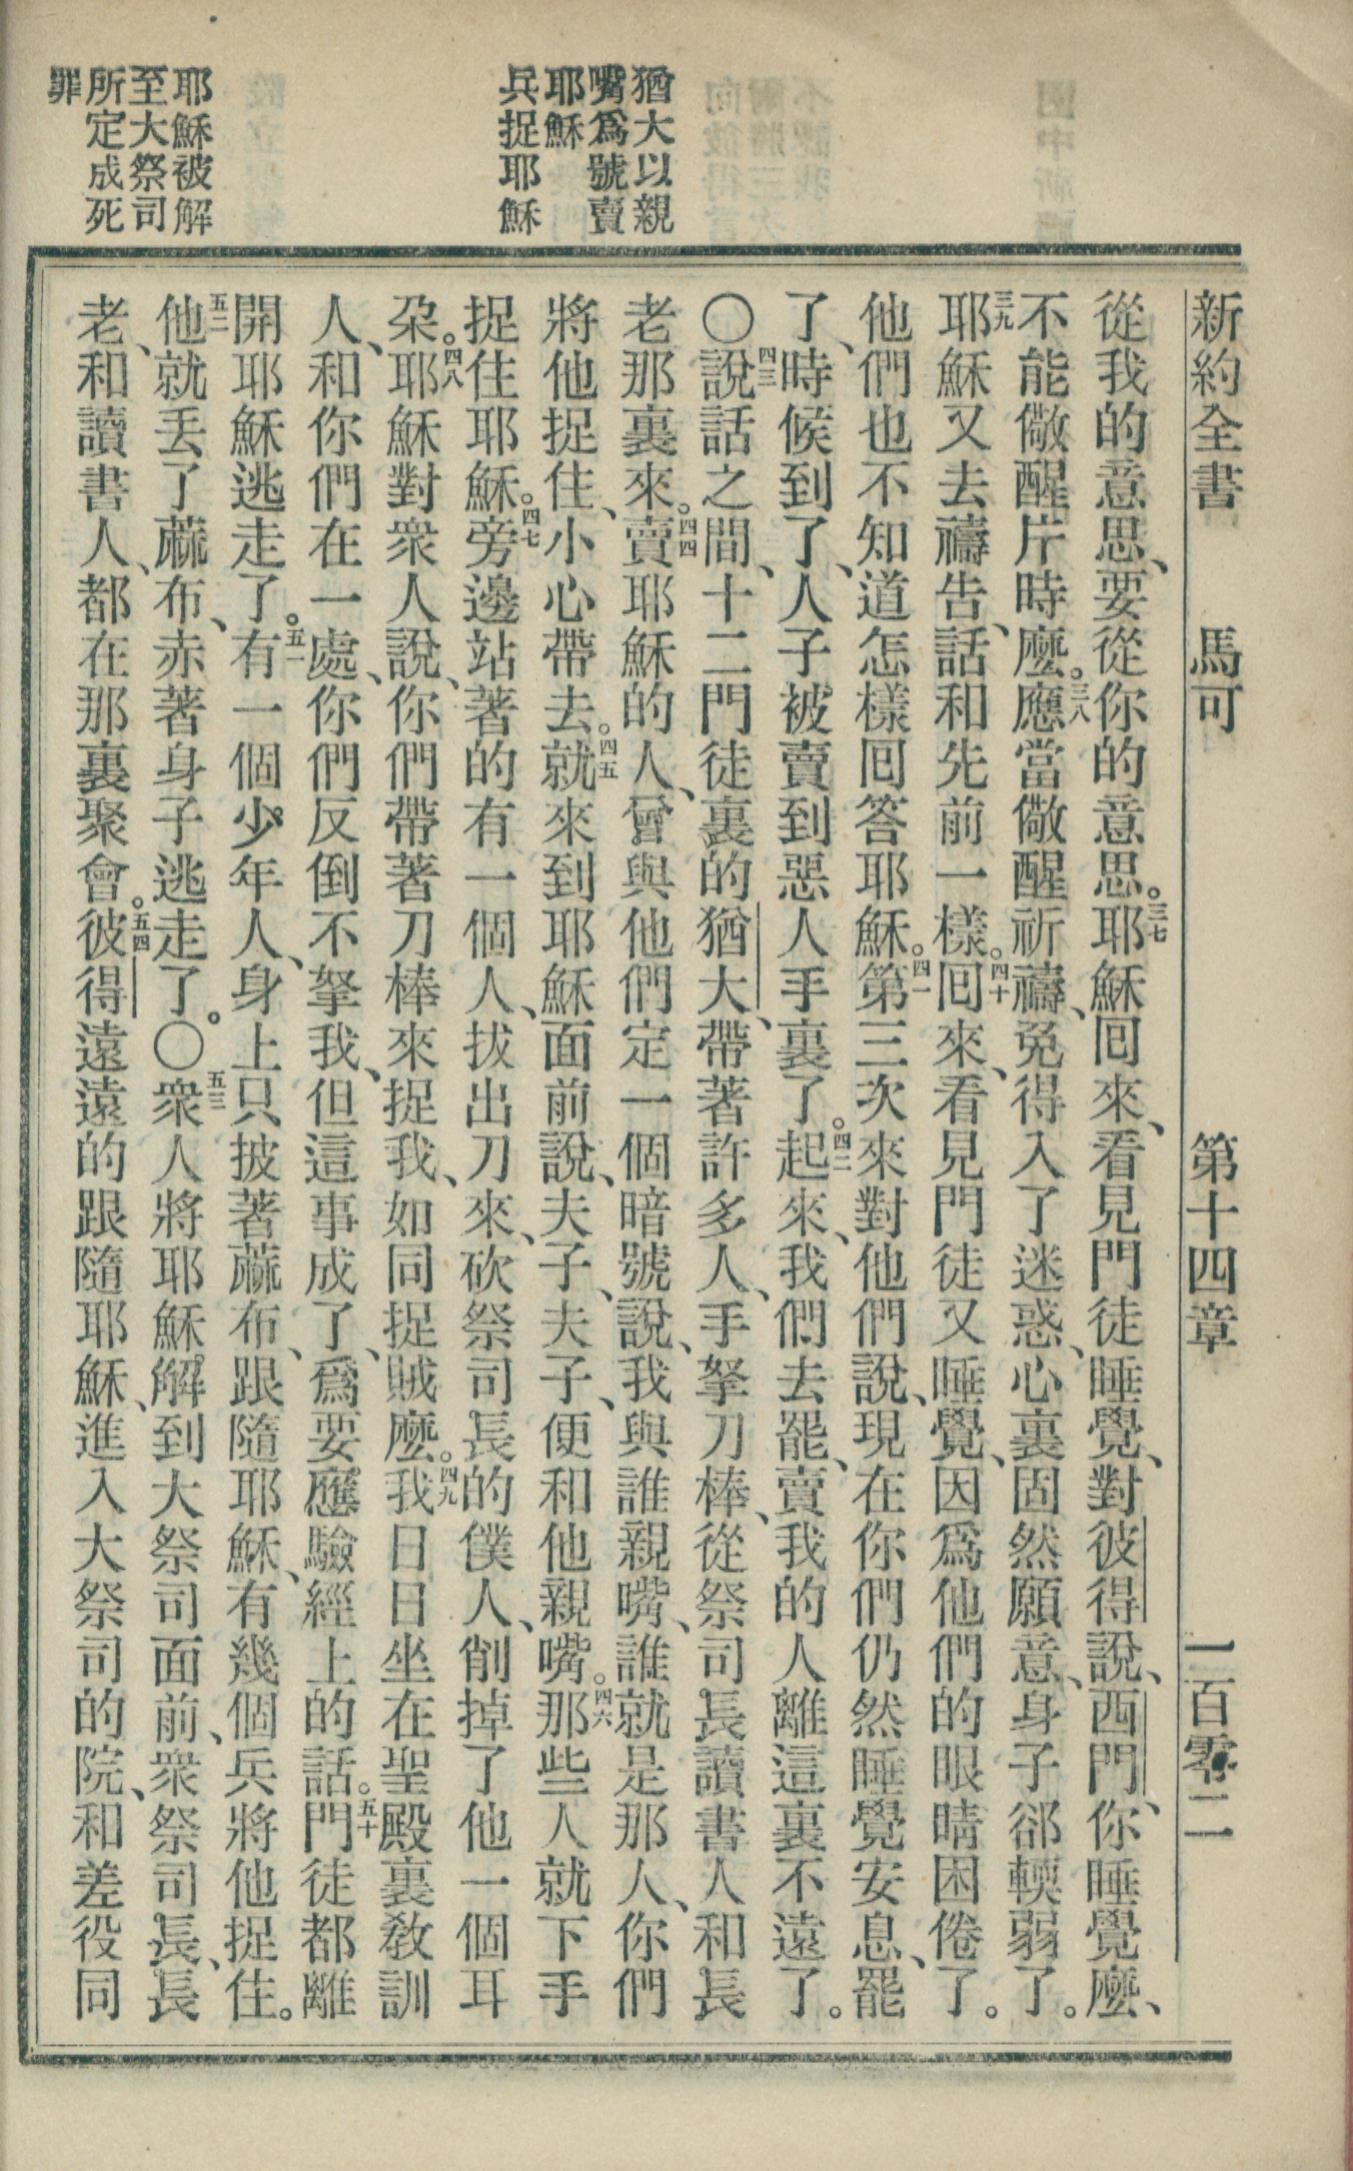 猶大以親
嘴爲號賣
耶穌
兵捉耶穌
耶穌被解
至大祭司
所定成死
罪
新約全書 馬可 第十四章 一百零二
從我的意思、要從你的意思。三七耶穌回來、看見門徒睡覺、對彼得說、西門、你睡覺麼、
不能儆醒片時麼。三八應當儆醒祈禱、免得入了迷惑、心裏固然願意、身子郤輭弱了。
三九耶穌又去禱告、話和先前一樣。四十回來、看見門徒又睡覺、因爲他們的眼睛困倦了。
他們也不知道怎樣回答耶穌。四一第三次來對他們說、現在你們仍然睡覺安息、罷
了、時候到了、人子被賣到惡人手裏了。四二起來、我們去罷、賣我的人離這裏不遠了。
〇四三說話之間、十二門徒裏的猶大、帶著許多人、手拏刀棒、從祭司長讀書人和長
老那裏來。四四賣耶穌的人、曾與他們定一個暗號說、我與誰親嘴、誰就是那人、你們
將他捉住、小心帶去。四五就來到耶穌面前說、夫子、夫子、便和他親嘴。四六那些人就下手
捉住耶穌。四七旁邊站著的有一個人、拔出刀來、砍祭司長的僕人、削掉了他一個耳
朶。四八耶穌對衆人說、你們帶著刀棒來捉我、如同捉賊麼。四九我日日坐在聖殿裏敎訓
人、和你們在一處、你們反倒不拏我、但這事成了、爲要應驗經上的話。五十門徒都離
開耶穌逃走了。五一有一個少年人、身上只披著蔴布、跟隨耶穌、有幾個兵將他捉住。
五二他就丟了蔴布、赤著身子逃走了。〇五三衆人將耶穌解到大祭司面前、衆祭司長、長
老、和讀書人、都在那裏聚會。五四彼得遠遠的跟隨耶穌、進入大祭司的院、和差役同